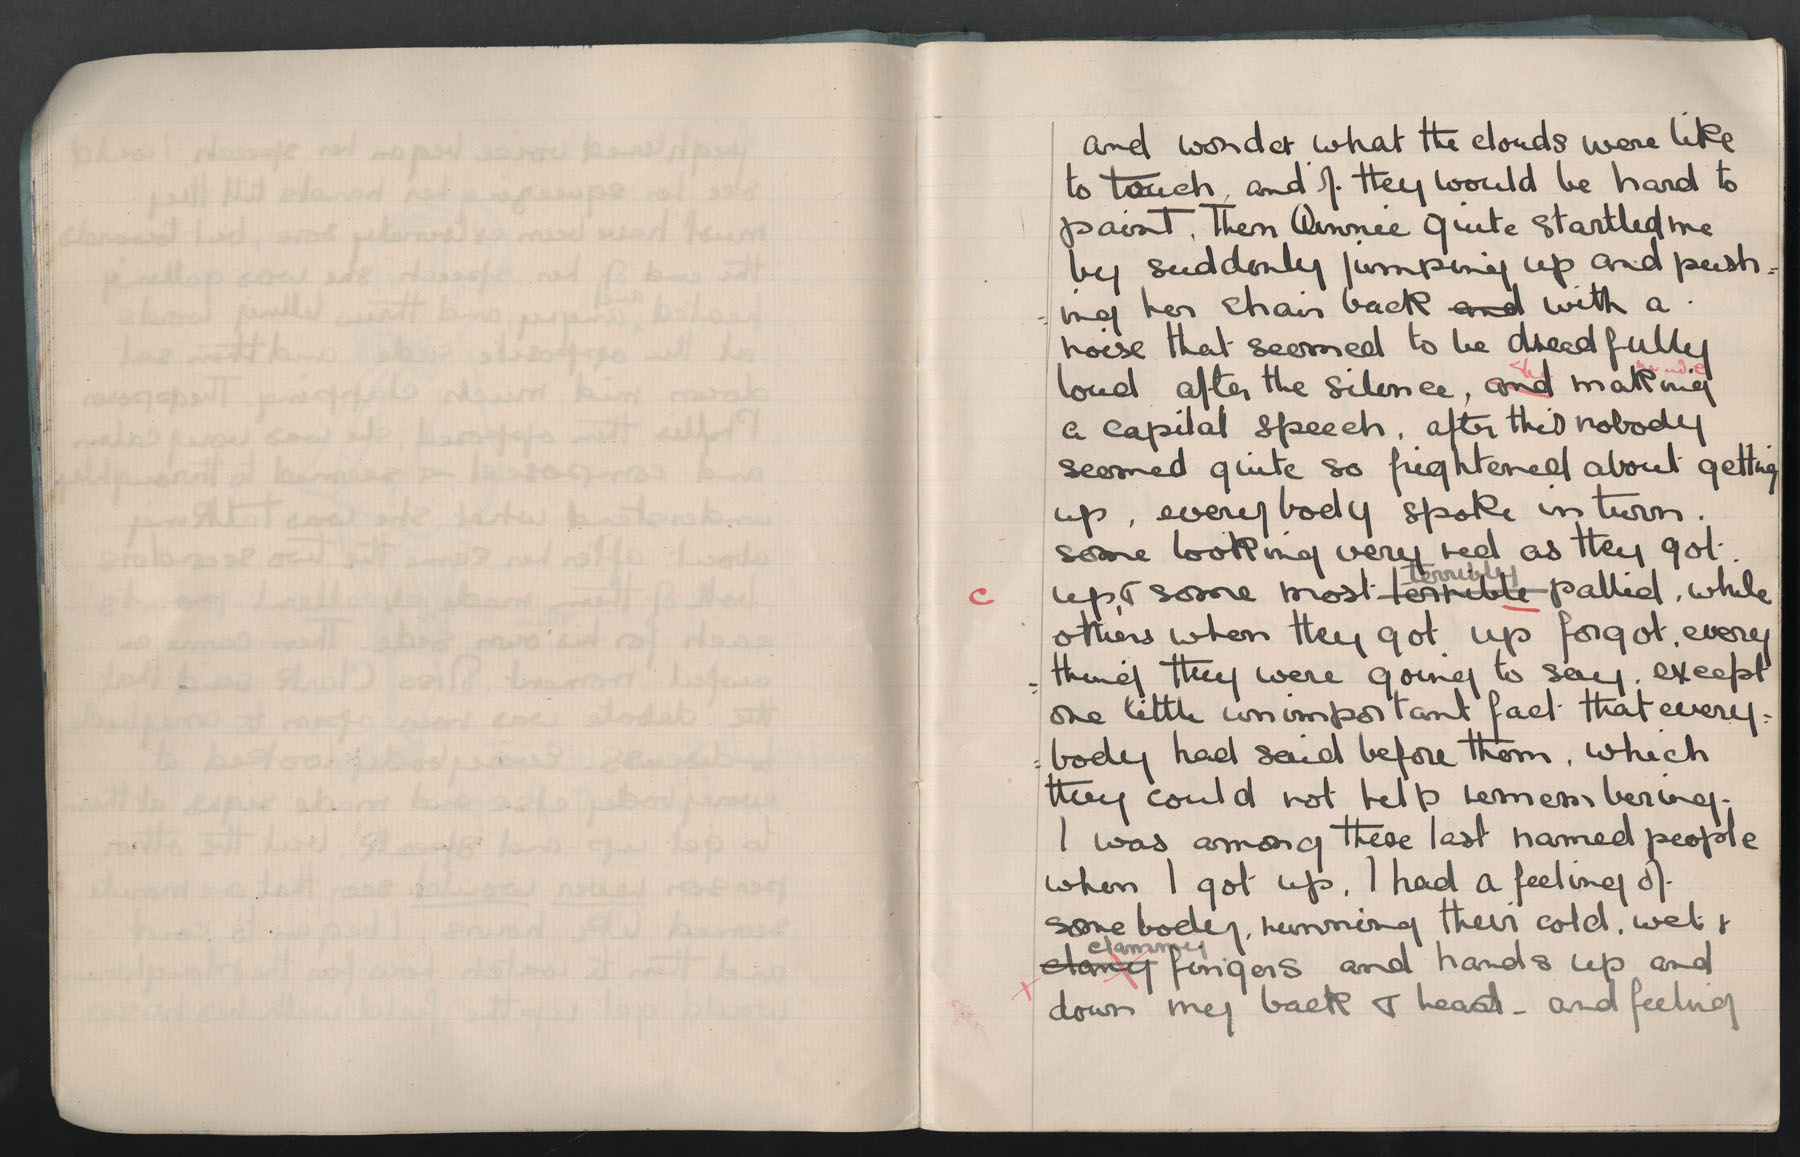 and wonder what the clouds were like
to touch, and if they would be hard to
paint, then Winnie quite startled me
by suddenly jumping up and push=
=ing her chair back and with a
noise that seemed to be dreadfully
she made
loud after the silence, and making
a capital speech, after this nobody
seemed quite so frightened about getting
up, everybody spoke in turn.
some looking very red as they got
terribly
c up, & some most terrible pallid, while
others when they got up forgot, every
=thing they were going to say, except
one little unimportant fact that every=
=body had said before them, which
they could not help remembering.
I was among these last named people
when I got up, I had a feeling of
somebody, running their cold, wet &
clammy
x clany fingers and hands up and
down my back & head - and feeling